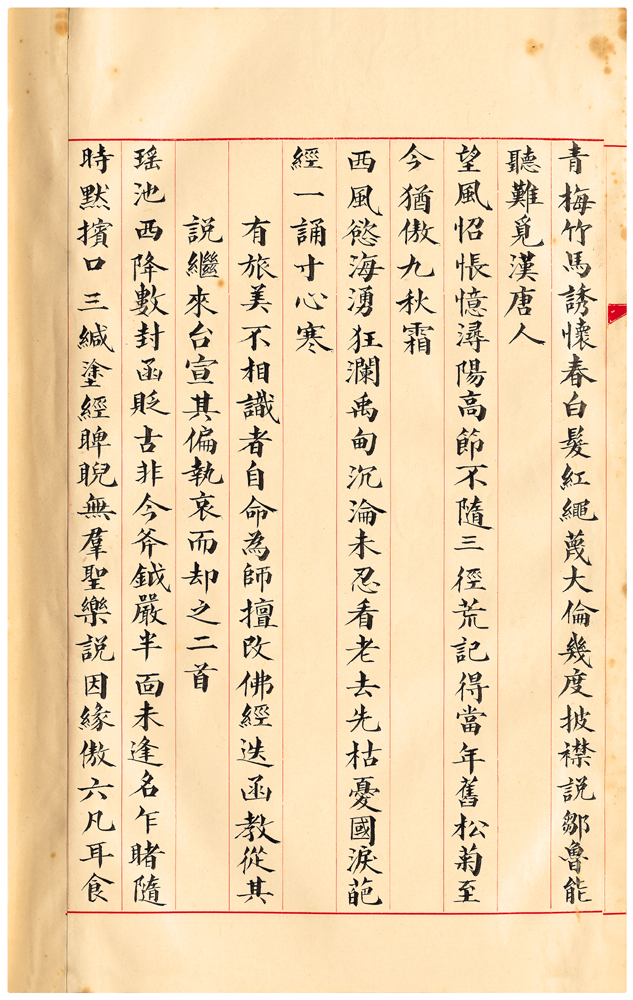 青梅竹馬誘懷春白髮紅繩蔑大倫幾度披襟説鄒魯能
聽難覓漢唐人
望風怊悵憶潯陽高節不隨三徑荒記得當年舊松菊至
今猶傲九秋霜
西風慾海湧狂瀾禹甸沉淪未忍看老去先枯憂國淚葩
經一誦寸心寒
有旅美不相識者自命為師擅改佛經迭函教從其
説繼來台宣其偏執哀而却之二首
瑶池西降數封函貶古非今斧鉞嚴半面未逢名乍睹隨
時默擯口三緘塗經睥睨無羣聖樂説因緣傲六凡耳食